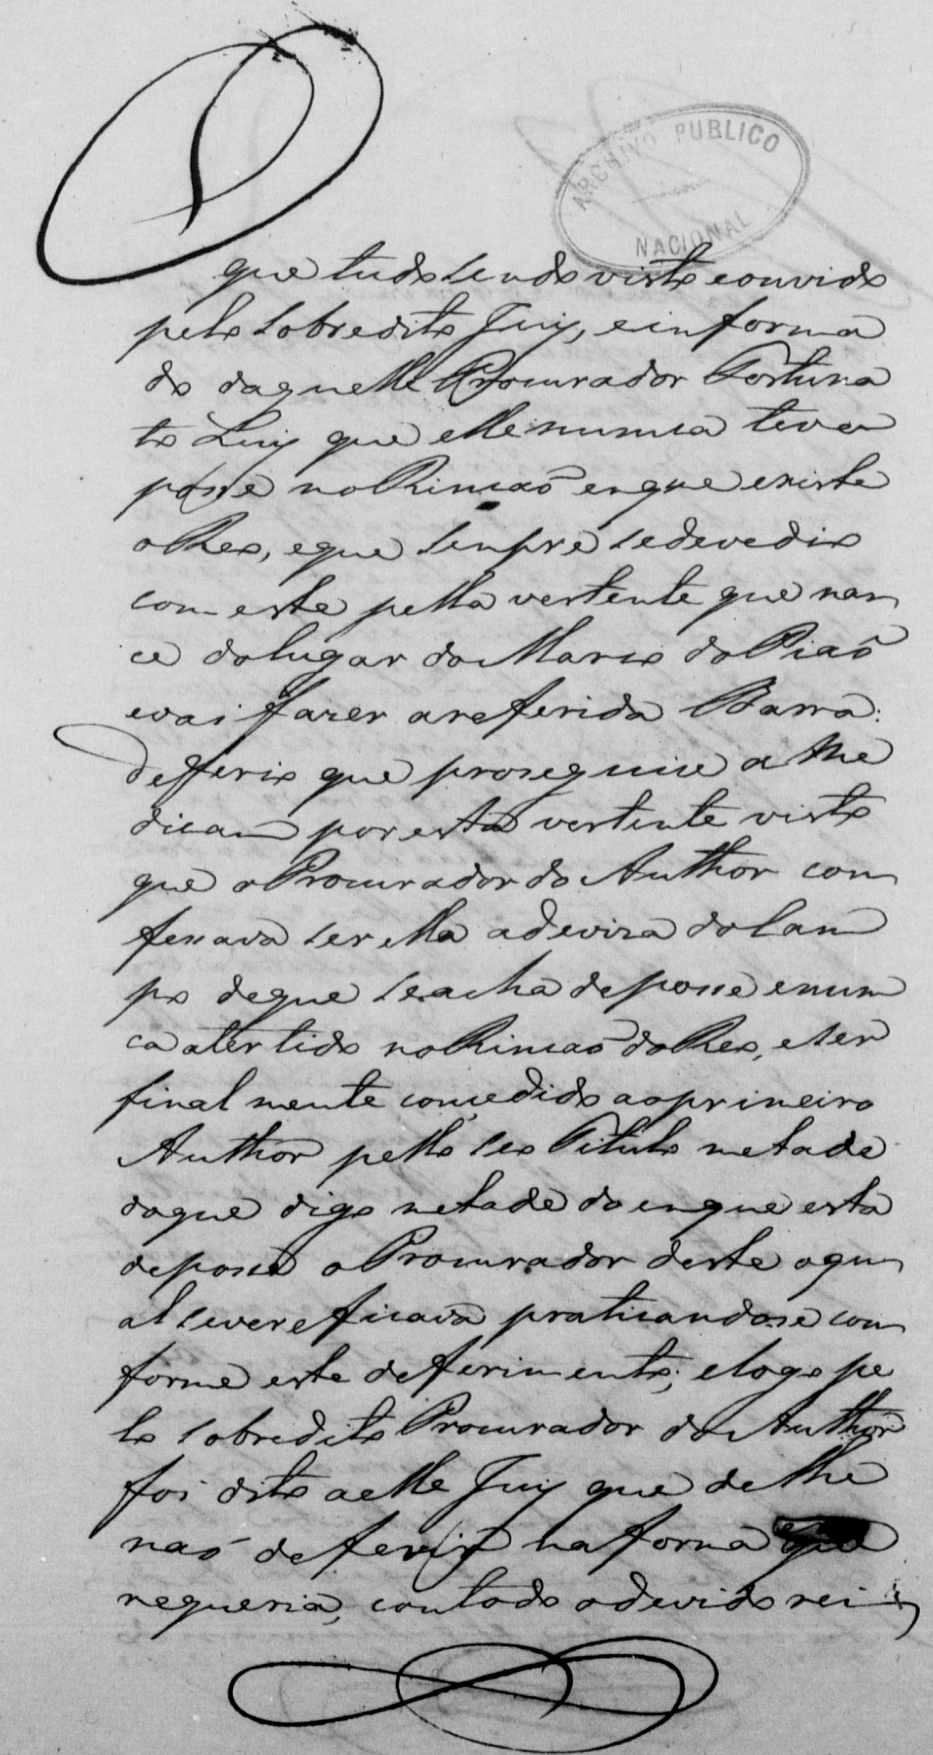 ARCHIVO PUBLICO
NACIONAL
que tudo sendo visto eouvido
pelo sobredito Juiz, einforma
do daquelle Procurador Fortuna
to Luiz que elle nunca teve
posse no Rincaõ enque existe
o Reo, eque senpre sedevedio
com este pella vertente que nas
ce dolugar do Marco do Piaõ
evai fazer areferida Barra:
defferio que proseguise a Me
dicam por esta vertente visto
que o Procurador do Author con
fessava ser ella adeviza do Cam
po deque seacha deposse enun
ca ater tido no Rincaõ do Reo, eser
final mente concedido aoprimeiro
Author pello seo Titulo metade
doque digo metade do enque esta
deposse o Procurador deste oqu
al severeficava praticandose con
forme este deferimento; elogo pe
lo sobredito Procurador do Author
foi dito aelle Juiz que delhe
naõ deferir na forma que
requeria, contado odevido rei